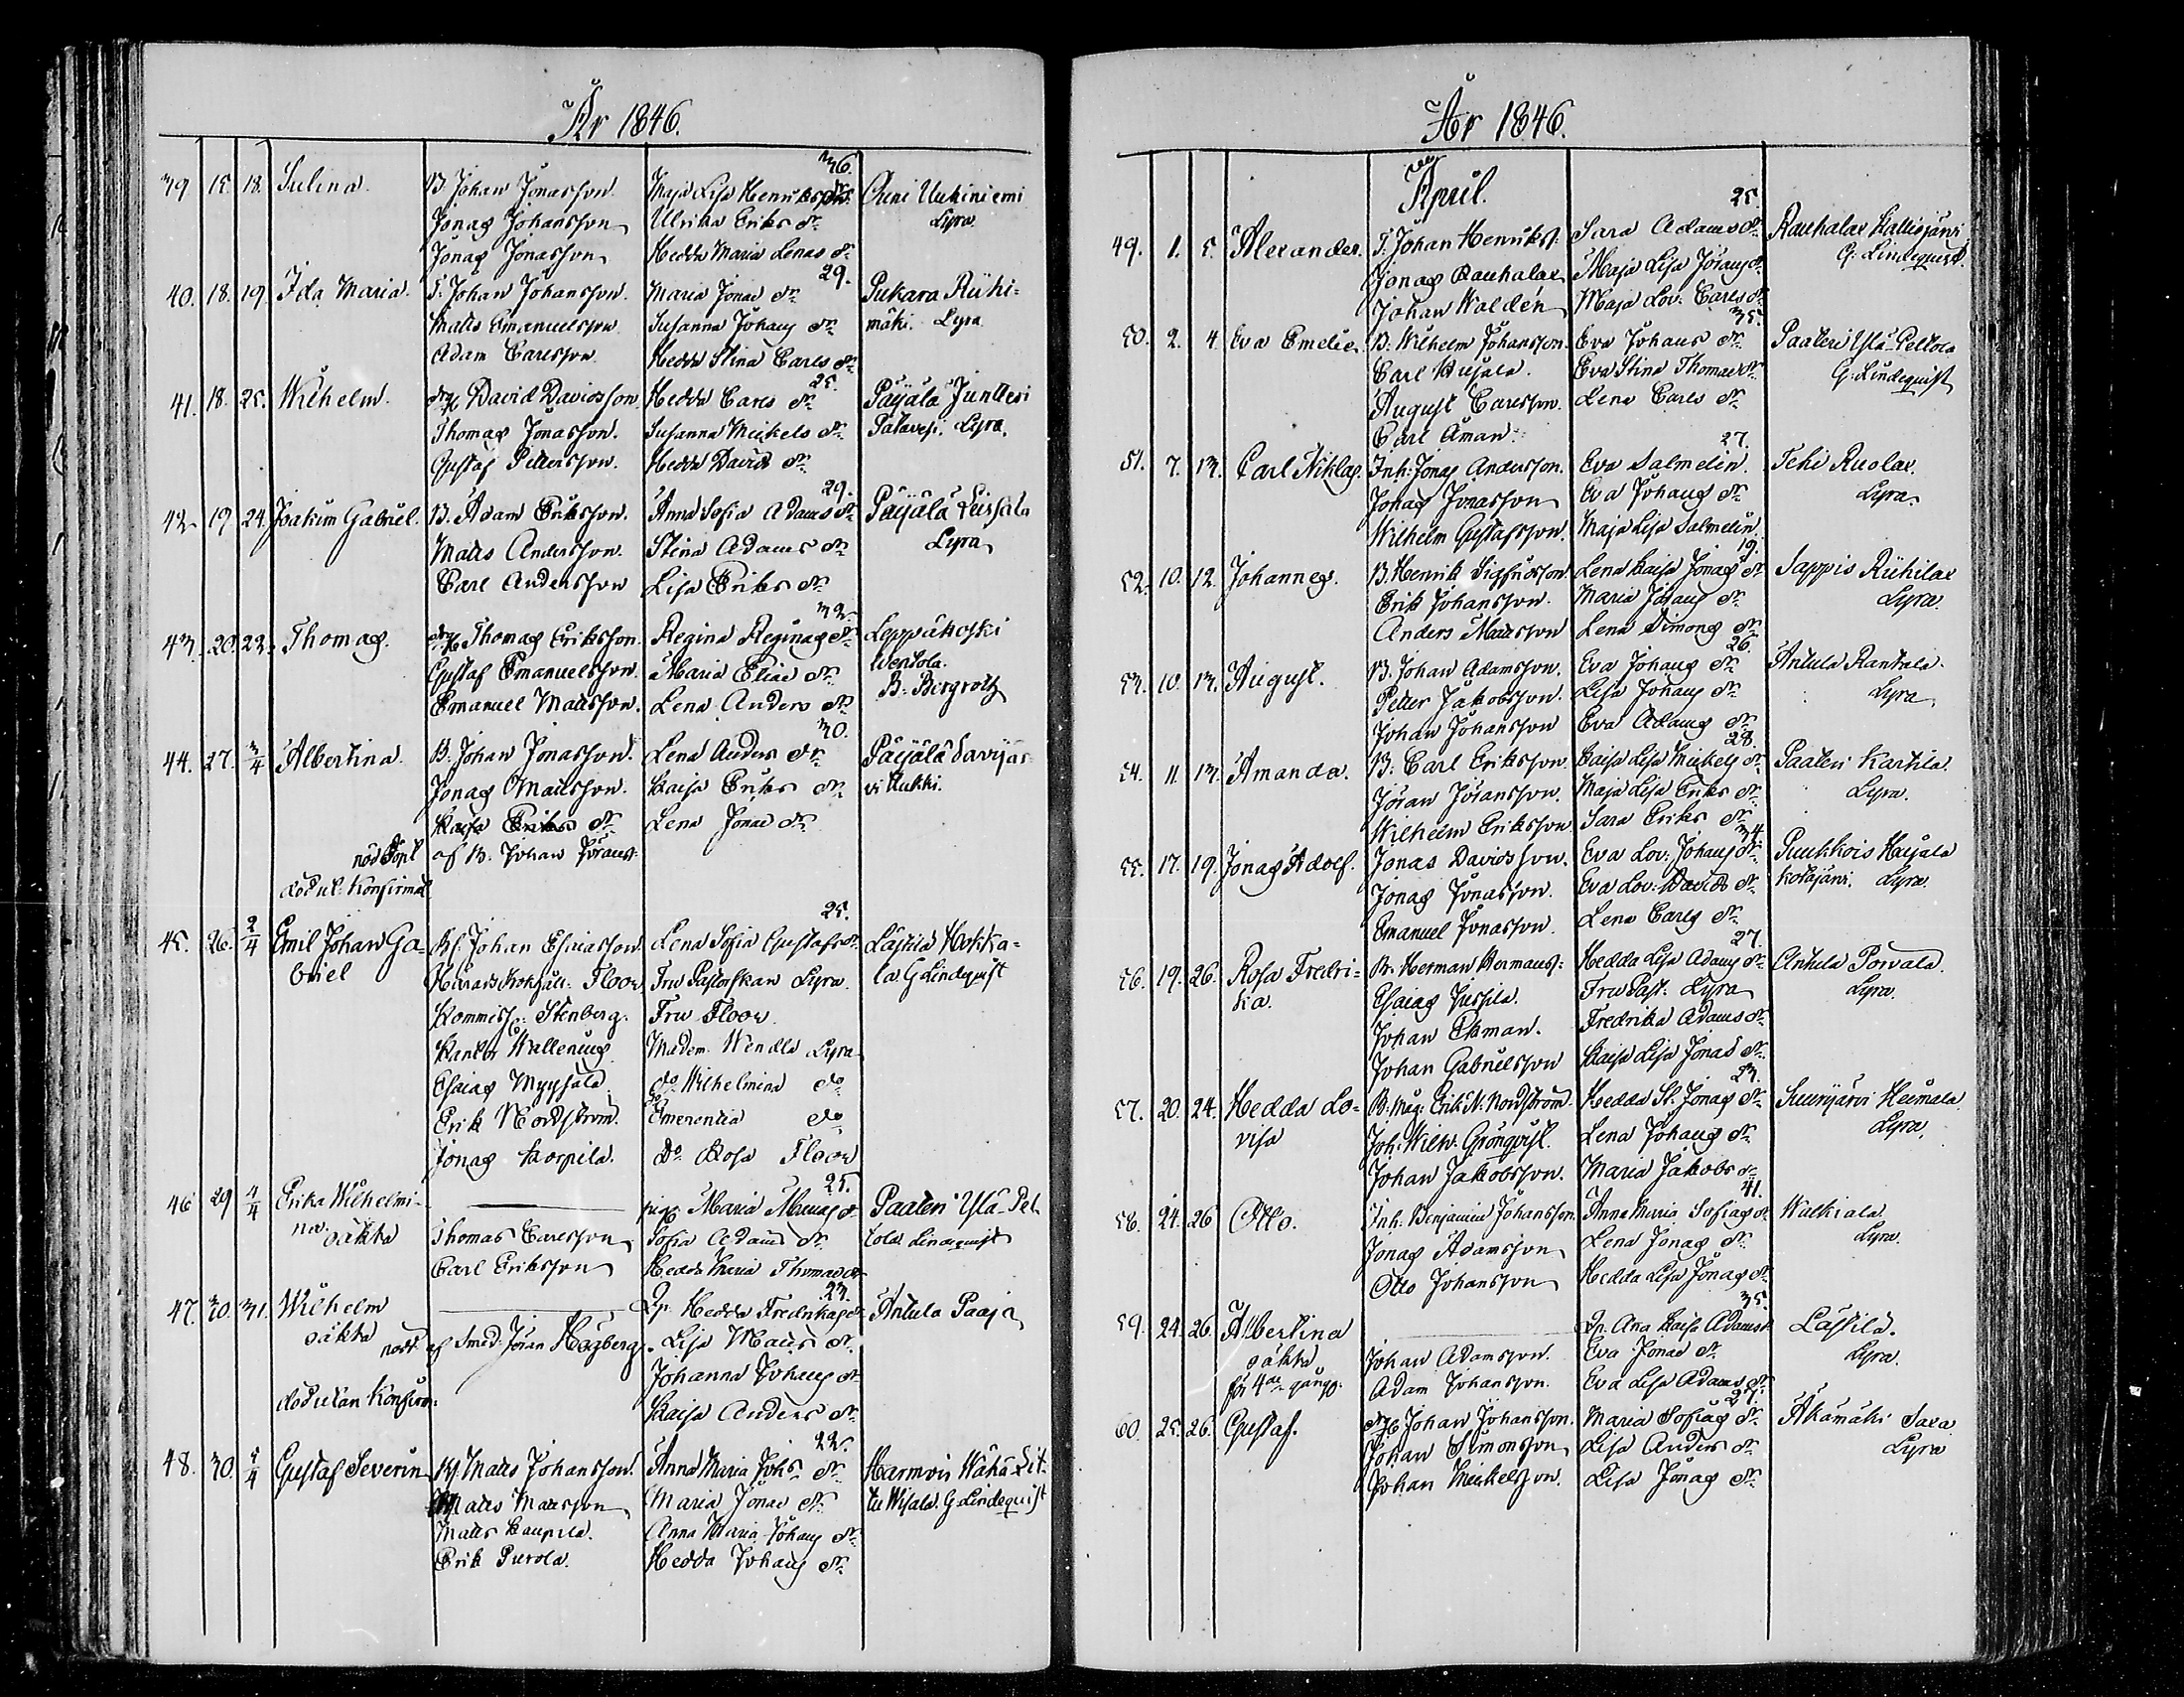 År 1846.
39 15. 18. Sulina. B. Johan Jonasson. Maja Lisa Henriks dr 36. Uukiniemi
Jonas Johansson Ulrika Eriks dr Lyra
Jonas Jonasson Hedda Maria Jonas dr
40. 18. 19. Ida Maria. T. Johan Johansson. Maria Jonas dr 29. Pukara Riihi-
Matts Emanuelsson Susanna Johans dr mäki Lyra
Adam Carlsson Hedda Stina Carls dr
41. 18. 25. Wilhelm. David Davidsson Hedda Carls dr 25. Päijälä Juntteri
Thomas Jonasson. Susanna Mickels dr Lyra.
Gustaf Pettersson. Hedda Davids dr
42 19 24. Joakim Gabriel. B. Adam Eriksson. Anna Sofia Adams dr 29. Päijälä
Matts Andersson. Stina Adams dr Lyra
Carl Andersson Lisa Eriks dr
43. 20. 22. Thomas. Thomas Eriksson. Regina Reginas dr 32. Leppäkoski
Gustaf Emanuelsson. Maria Elias dr
Emanuel Mattsson. Lena Anders dr B. Bergroth
44. 27. 3/4 Albertina. B. Johan Jonasson. Lena Anders dr 30. Päijälä Savijär-
Jonas Mattsson. Kaisa Eriks dr vi Kukki.
Kaisa Eriks dr Lena Jonas dr
nöddöpt af B. Johan Jöranss:
död ut. Konfirmat.
45. 26. 2/4 Emil Johan Ga- Johan Esaiasson Lena Sofia Gustafs dr 25. Laskia Hokka-
briel Floor Fru Pastorskan Lyra la G Lindequist
Kommiss: Stenberg. Fru Floor
Kantor Wallenius Madem. Wendla Lyra
Esaias do Wilhelmina do
Erik Nordström. Do Emerentia do
Jonas Korpila. Do Rosa Floor
46 29 4/4 Erika Wilhelmi- pig. Maria Marias dr 25. Paaten Ylä-Pel
na. oäkta Thomas Carlsson Sofia Adams dr tola Lindequist
Carl Eriksson Hedda Maria Thomas dr
47. 30. 31. Wilhelm Qp. Hedda Fredrikas dr 23. Antula Paaja
oäkta nödd. af Smed. Jöran Högberg. Lisa Matts dr
Johanna Johans dr
död utan Konfirm: Kaisa Anders dr
48. 30. 5/4 Gustaf Severin Matts Johansson. Anna Maria Johs dr 22. Harmois Wähä Lit-
Matts Mattsson Maria Jonas dr tu G Lindequist
Matts Kaupila. Anna Maria Johans dr
Erik Purola. Hedda Johans dr
År 1846.
April.
49. 1. 5. Alexander. T. Johan Henrikss: Sara Adams dr 25. Rauhalax Kallisjärvi
Jonas Rauhalax Maja Lisa Jörans dr G. Lindequist.
Johan Waldén Maja Lov: Carls dr
50. 2. 4. Eva Emelie. B. Wilhelm Johansson. Eva Johans dr 35. Paateri Ylä-Peltola
Carl Eva Stina Thomas dr G. Lindequist
August Carlsson. Lena Carls dr
Carl Åman.
51. 7. 13. Carl Niklas. Inh: Jonas Andersson. Eva Salmelin. 27. Tehi Ruolax.
Jonas Jonasson Eva Johans dr Lyra
Wilhelm Gustafsson. Maja Lisa Salmelin
52. 10. 12. Johannes. B. Henrik Sigfridsson. Lena Kaisa Jonas dr 19. Sappis Riihilax
Erik Johansson. Maria Jörans dr Lyra.
Anders Mattsson Lena Simons dr
53. 10. 13. August. B. Johan Adamsson. Eva Johans dr 26. Antula Rantala
Petter Jakobsson. Lisa Johans dr Lyra
Johan Johansson Eva Adams dr
54. 11 13. Amanda. B. Carl Eriksson Kaisa Lisa Mickels dr 28. Paateri Karkila
Jöran Jöransson. Maja Lisa Eriks dr Lyra.
Wilhelm Eriksson Sara Eriks dr
55. 17. 19. Jonas Adolf. Jonas Davidsson. Eva Lov: Johans dr 34. Puukkois Heijala
Jonas Jonasson. Eva Lov: Davids dr Kotajärvi. Lyra.
Emanuel Jonasson. Lena Carls dr
56. 19. 26. Rosa Fredri- B. Herman Hermanss: Hedda Lisa Adams dr 27. Antula Porvala
ka. Esaias Jussila. Fru Past: Lyra Lyra.
Johan Ekman. Fredrika Adams dr
Johan Gabrielsson Kaisa Lisa Jonas dr
57. 20. 24. Hedda Lo- B. Mag: Erik N: Nordström Hedda St. Jonas dr 23. Ruurijärvi Heimala
visa Joh: Wilh: Grönqvist. Lena Johans dr Lyra.
Johan Jakobsson. Maria Jakobs dr
58. 24. 26 Otto. Inh: Benjamin Johansson Anna Maria Sofias dr 41. Walkiala
Jonas Adamsson Lena Jonas dr Lyra.
Otto Johansson Hedda Lisa Jonas dr
59. 24. 26. Albertina Qp. Ana Kaisa Adams dr 35. Lästilä.
oäkta Johan Adamsson. Eva Jonas dr Lyra.
för 4de gång. Adam Johansson. Eva Lisa Adams dr
60. 25. 26. Gustaf. Johan Johansson. Maria Sofias dr 27. Åkämäki Sara
Johan Simonsson Lisa Anders dr Lyra
Johan Mickelsson. Lisa Jonas dr